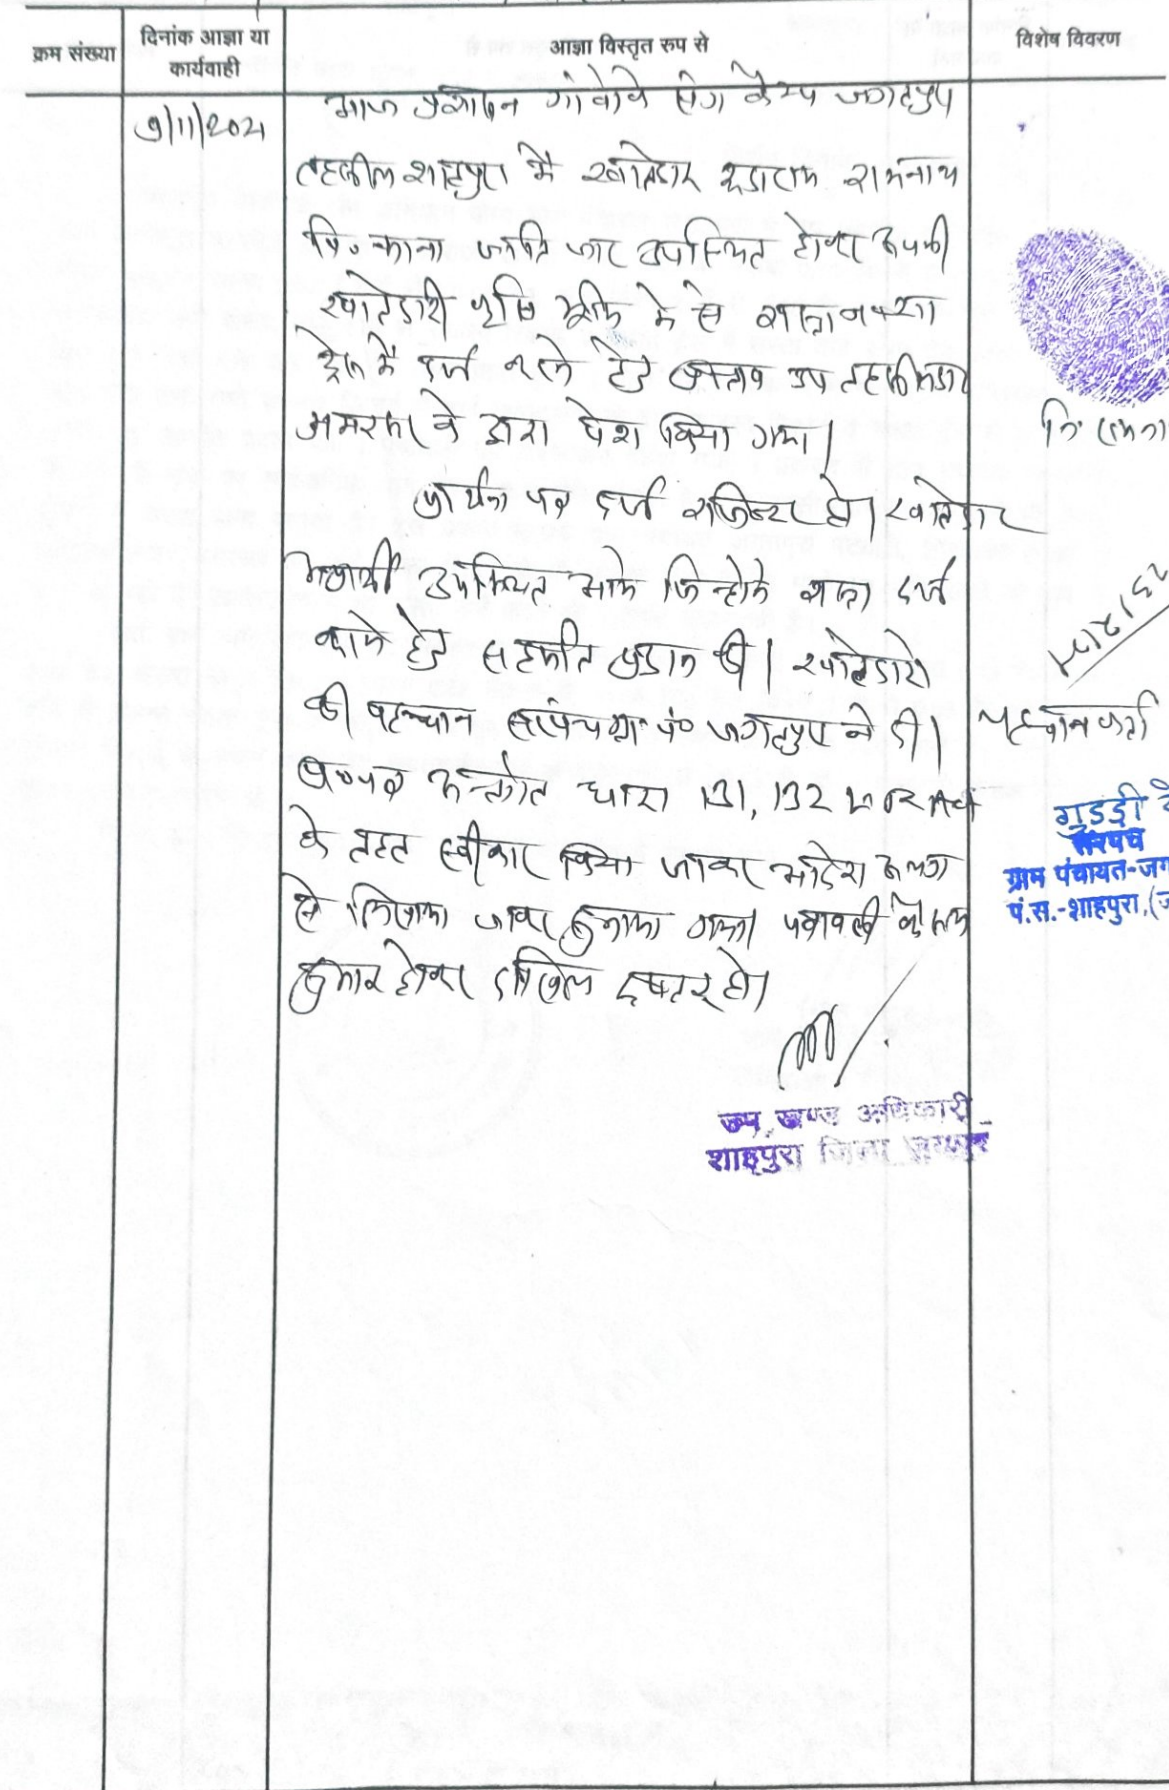 क्रम संख्या
दिनांक आज्ञा या
कार्यवाही
आज्ञा विस्तृत रुप से
विशेष विवरण
9/11/2021
आज प्रशासन गांवो के संग कैम्प जगतपुरा
तहसील शाहपुरा में खातेदार रामनाथ
पि० काना जाति जाट उपस्थित होकर अपनी
खातेदारी कृषि भूमि मे से रास्ता नक्शा
में दर्ज करने हेतु प्रस्ताव उप तहसीलदार
अमरसर के द्वारा पेश किया गया।
प्रार्थना पत्र दर्ज रजिस्टर हो। खातेदार
उपस्थित आये जिन्होने रास्ता दर्ज
करने हेतु सहमति प्रदान की। खातेदारो
की पहचान सरपंच ग्रा० पं० जगतपुरा ने की।
अन्तर्गत धारा 131, 132 LR Act
के तहत स्वीकार किया जाकर आदेश अलग
से लिखाया जाकर सुनाया गया। पत्रावली फैसल
शुमार होकर दाखिल दफ्तर हो।
उप खण्ड अधिकारी
शाहपुरा जिला जयपुर
नि
पहचान कर्ता
गुडडी दे
सरपंच
ग्राम पंचायत-जग
पं.स.-शाहपुरा, (ज